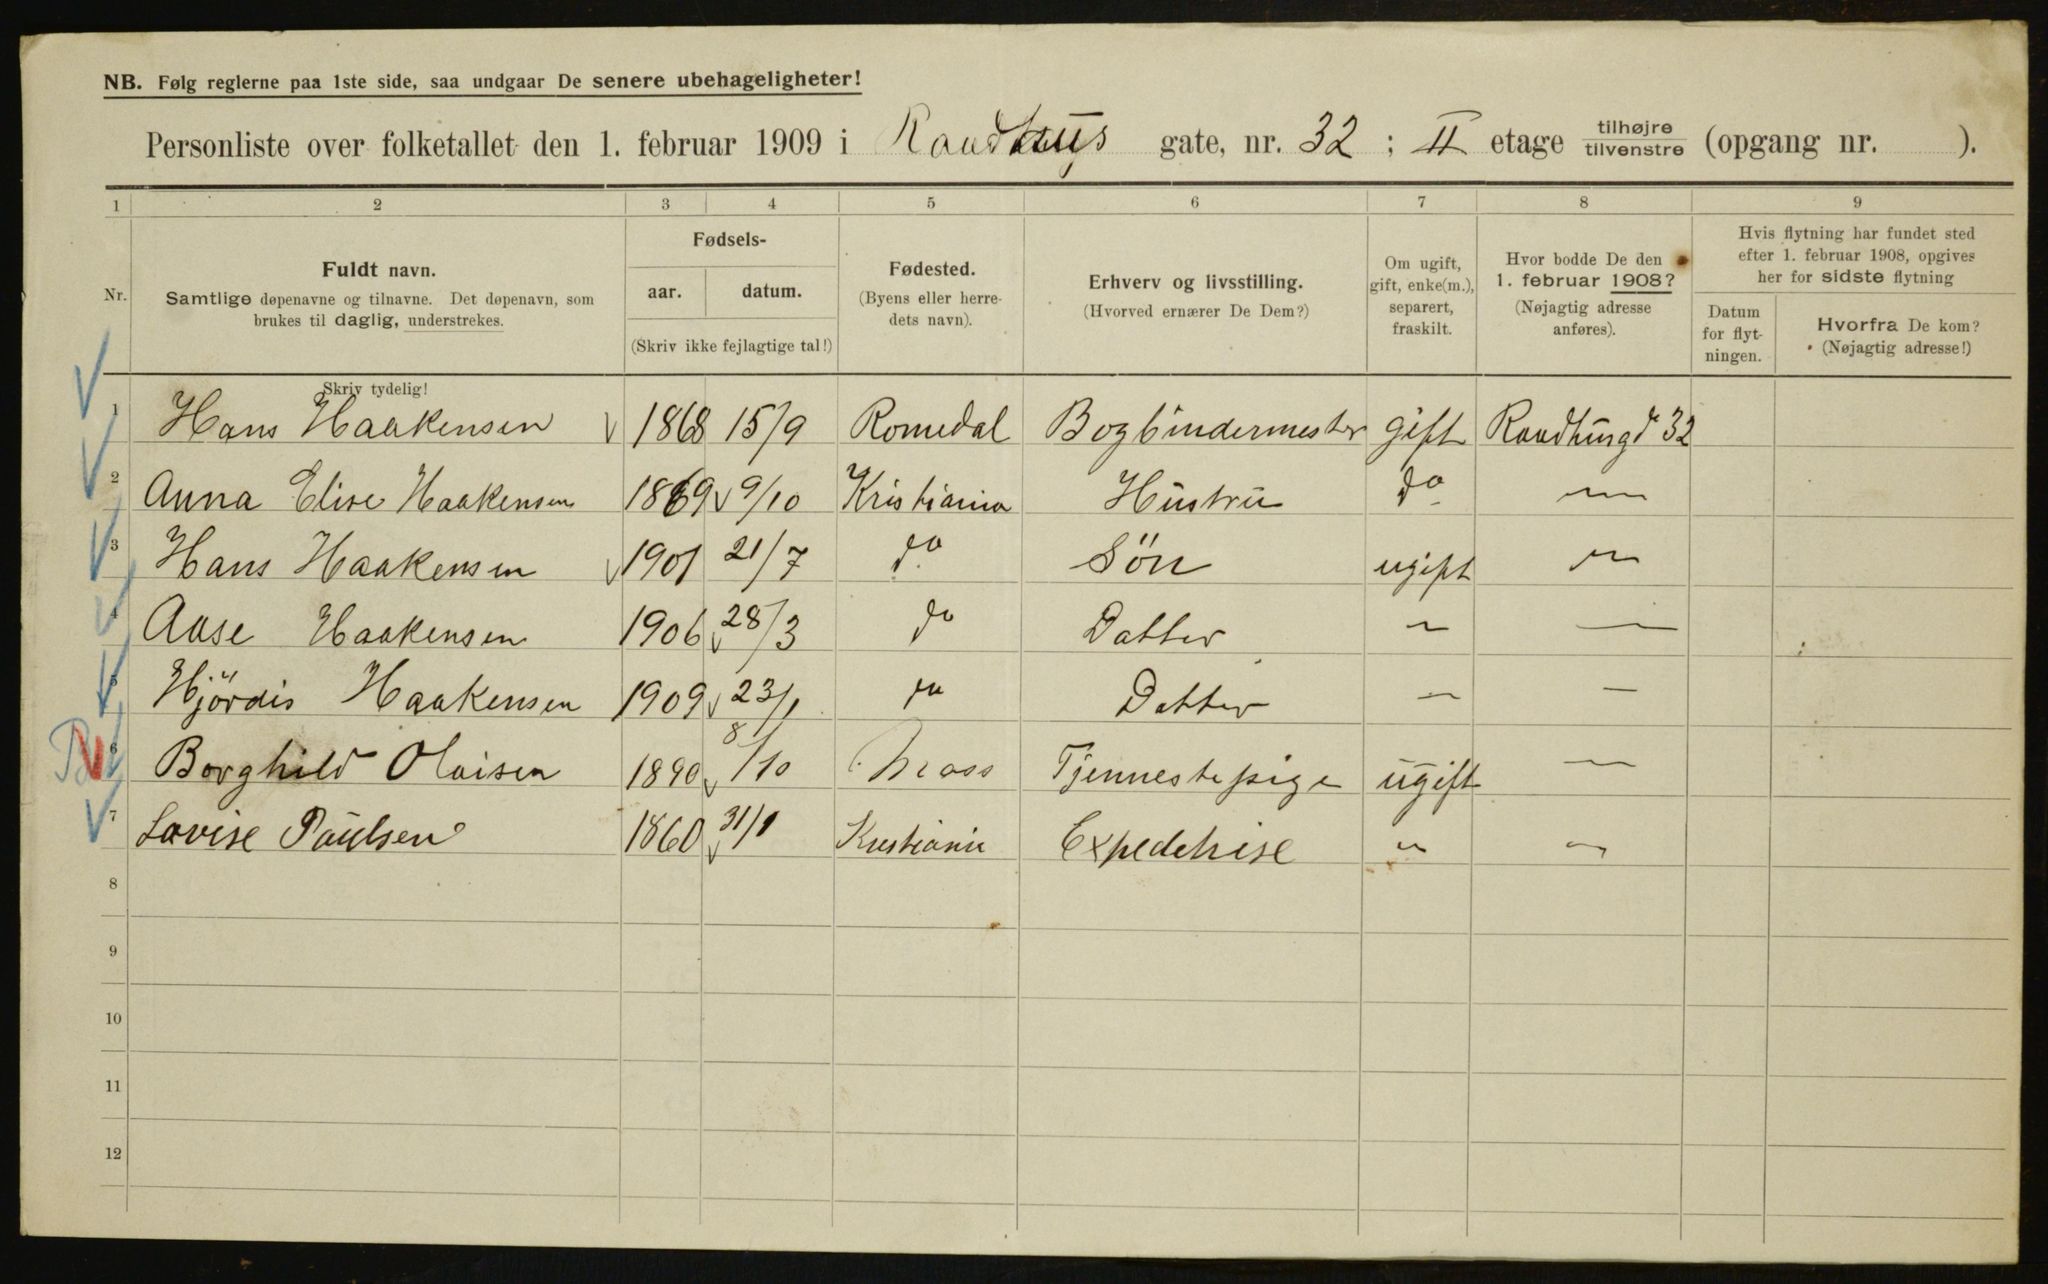 NB. Følg reglerne paa 1ste side, saa undgaar De senere ubehageligheter!
Personliste over folketallet den 1. februar 1909 i Raadhus gate, nr. 32 ; II etage tilhøjre tilvenstre (opgang nr. ).
1 2 3 4 5 6 7 8 9
Nr.
Fuldt navn.
Samtlige døpenavne og tilnavne. Det døpenavn, som
brukes til daglig, understrekes.
Fødsels-
aar. datum.
(Skriv ikke fejlagtige tal!)
Fødested.
(Byens eller herre-
dets navn).
Erhverv og livsstilling.
(Hvorved ernærer De Dem?)
Om ugift,
gift, enke(m.),
separert,
fraskilt.
Hvor bodde De den
1. februar 1908?
(Nøjagtig adresse
anføres).
Hvis flytning har fundet sted
efter 1. februar 1908, opgives
her for sidste flytning
Datum
for flyt-
ningen.
Hvorfra De kom?
(Nøjagtig adresse!)
Skriv tydelig!
1 Hans Haakensen 1868 15/9 Romedal Bogbindermester gift Raadhusgd 32
2 Anna Elise Haakensen 1869 9/10 Kristiania Hustru do –
3 Hans Haakensen 1901 21/7 do Sön ugift –
4 Aase Haakensen 1906 28/3 do Datter – –
5 Hjördis Haakensen 1909 23/1 do Datter – –
6 Borghild Olaisen 1890 8/10 Moss Tjennestepige ugift –
7 Lovise Paulsen 1860 31/1 Kristiania Expedetrise " –
8
9
10
11
12